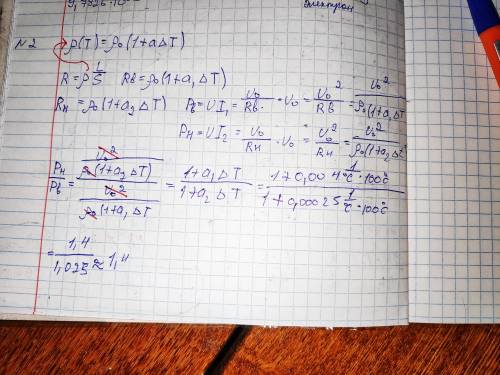 9,7826·10
электрон
№2 ρ(T)=ρ₀(1+aΔT)
R=ρ 1/S Rв=ρ₀(1+a₁ΔT)
Rн=ρ₀(1+a₂ΔT) Pв=UI₁=U₀/Rв·U₀=U₀²/Rв=U₀²/ρ₀(1+a₁ΔT
Pн=UI₂=U₀/Rн·U₀=U₀²/Rн=U₀²/ρ₀(1+a₂Δ
Pн/Pв=(U₀²/ρ₀(1+a₂ΔT))/(U₀²/ρ₀(1+a₁ΔT)=(1+a₁ΔT)/(1+a₂ΔT)=(1+0,004 1/°C·100°C)/(1+0,00025 1/°C·100°C)
=1,4/1,025≈1,4